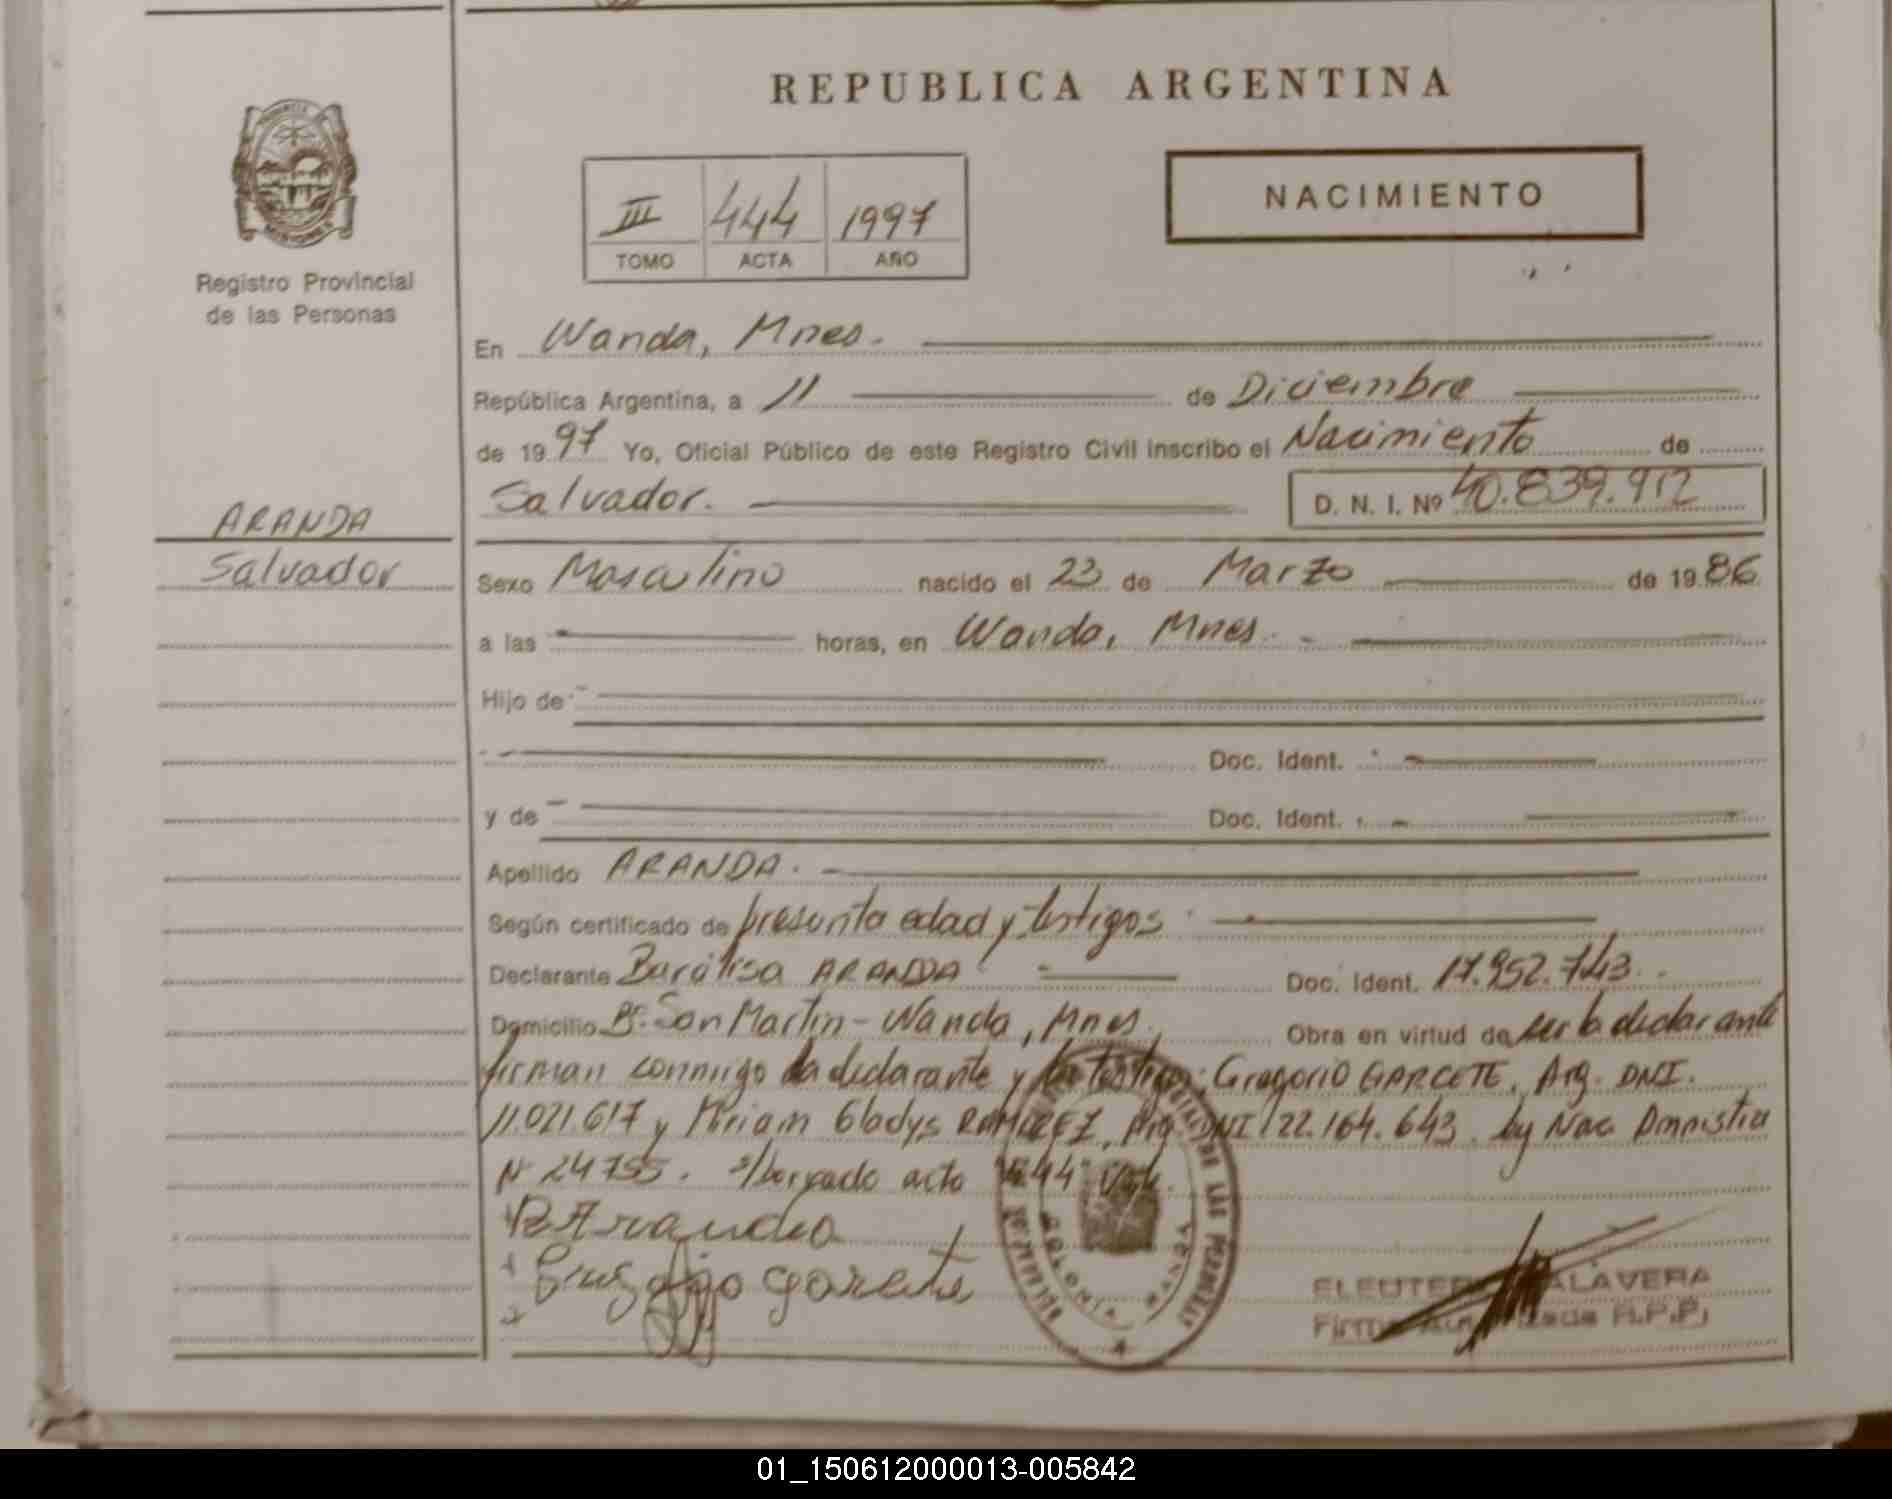 REPUBLICA ARGENTINA
NACIMIENTO
III 444 1997
TOMO ACTA AÑO
Registro Provincial
de las Personas
En Wanda, Mnes.
República Argentina, a 11 de Diciembre
de 1997 Yo, Oficial Público de este Registro Civil inscribo el Nacimiento de
Salvador. D. N. I. Nº 40.839.912
ARANDA
Salvador
Sexo Masculino nacido el 23 de Marzo de 1986
a las horas, en Wanda, Mnes.
Hijo de
Doc. Ident.
y de Doc. Ident.
Apellido ARANDA.
Según certificado de presunta edad y testigos
Declarante ARANDA Doc. Ident. 17.952.743.
Domicilio Bº San Martin - Wanda, Mnes. Obra en virtud de ser la declarante
firman conmigo la declarante y los testigos: Gregorio GARCETE, Arg. DNI.
11.021.617 y Miriam Gladys RAMIREZ, Arg. DNI 22.164.643. Ley Nac. Amnistia
Nº 24755. s/borrado acta 444 Vale.
B Aranda
garcete
COLONIA WANDA
ELEUTERIO TALAVERA
Firma Autorizada R.P.P.
01_150612000013-005842